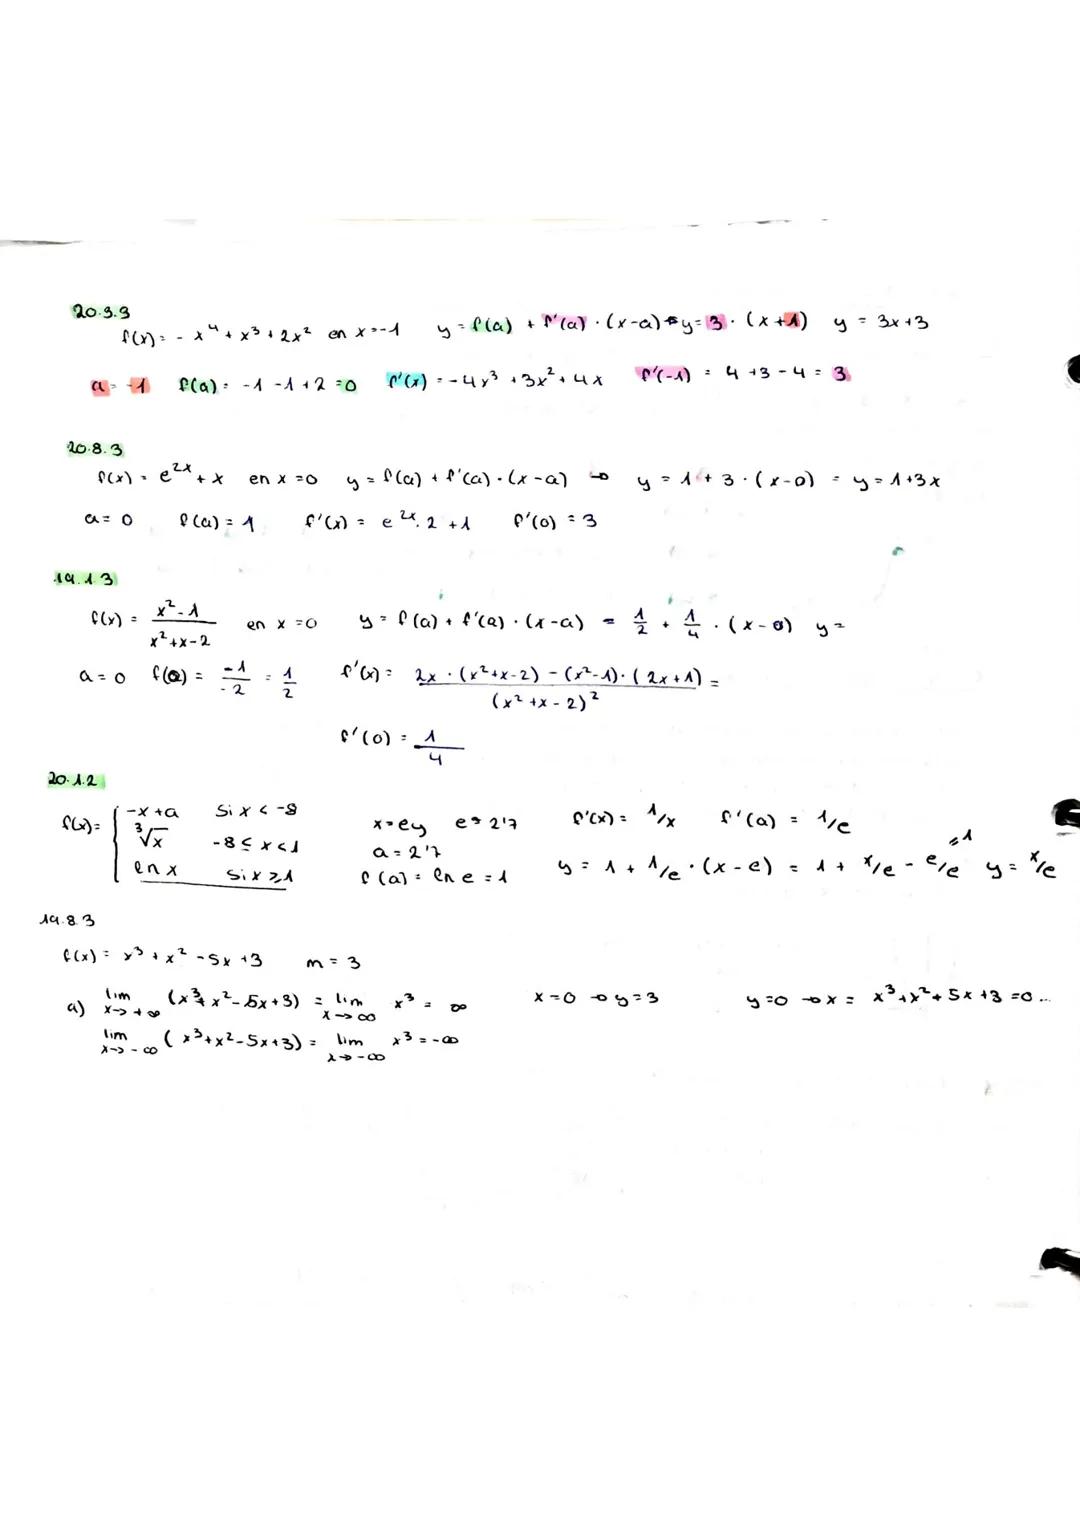 20.3.3
f(x) = - x⁴ + x³ + 2x² en x = -1 y = f(a) + f'(a) · (x-a) → y = 3 · (x+1) y = 3x+3
a = -1 f(a) = -1 -1 +2 = 0 f'(x) = -4x³ + 3x² + 4x f'(-1) = 4 + 3 - 4 = 3
20.8.3
f(x) = e²ˣ + x en x = 0 y = f(a) + f'(a) · (x-a) → y = 1 + 3 · (x-0) = y = 1+3x
a = 0 f(a) = 1 f'(x) = e²ˣ · 2 + 1 f'(0) = 3
19.1.3
f(x) = (x²-1)/(x²+x-2) en x = 0 y = f(a) + f'(a) · (x-a) = 1/2 + 1/4 · (x-0) y =
a = 0 f(0) = -1/-2 = 1/2 f'(x) = (2x · (x²+x-2) - (x²-1) · (2x+1))/(x²+x-2)² =
f'(0) = 1/4
20.1.2
f(x) = { -x+a si x < -8
∛x -8 ≤ x < 1
ln x si x ≥ 1
x = ey e = 2'7 f'(x) = 1/x f'(a) = 1/e
a = 2'7
f(a) = ln e = 1 y = 1 + 1/e · (x-e) = 1 + x/e - e/e =1 y = x/e
19.8.3
f(x) = x³ + x² - 5x + 3 m = 3
a) lim x→+∞ (x³+x²-5x+3) = lim x→∞ x³ = ∞ x=0 → y=3 y=0 → x = x³+x²+5x+3 =0...
lim x→-∞ (x³+x²-5x+3) = lim x→-∞ x³ = -∞